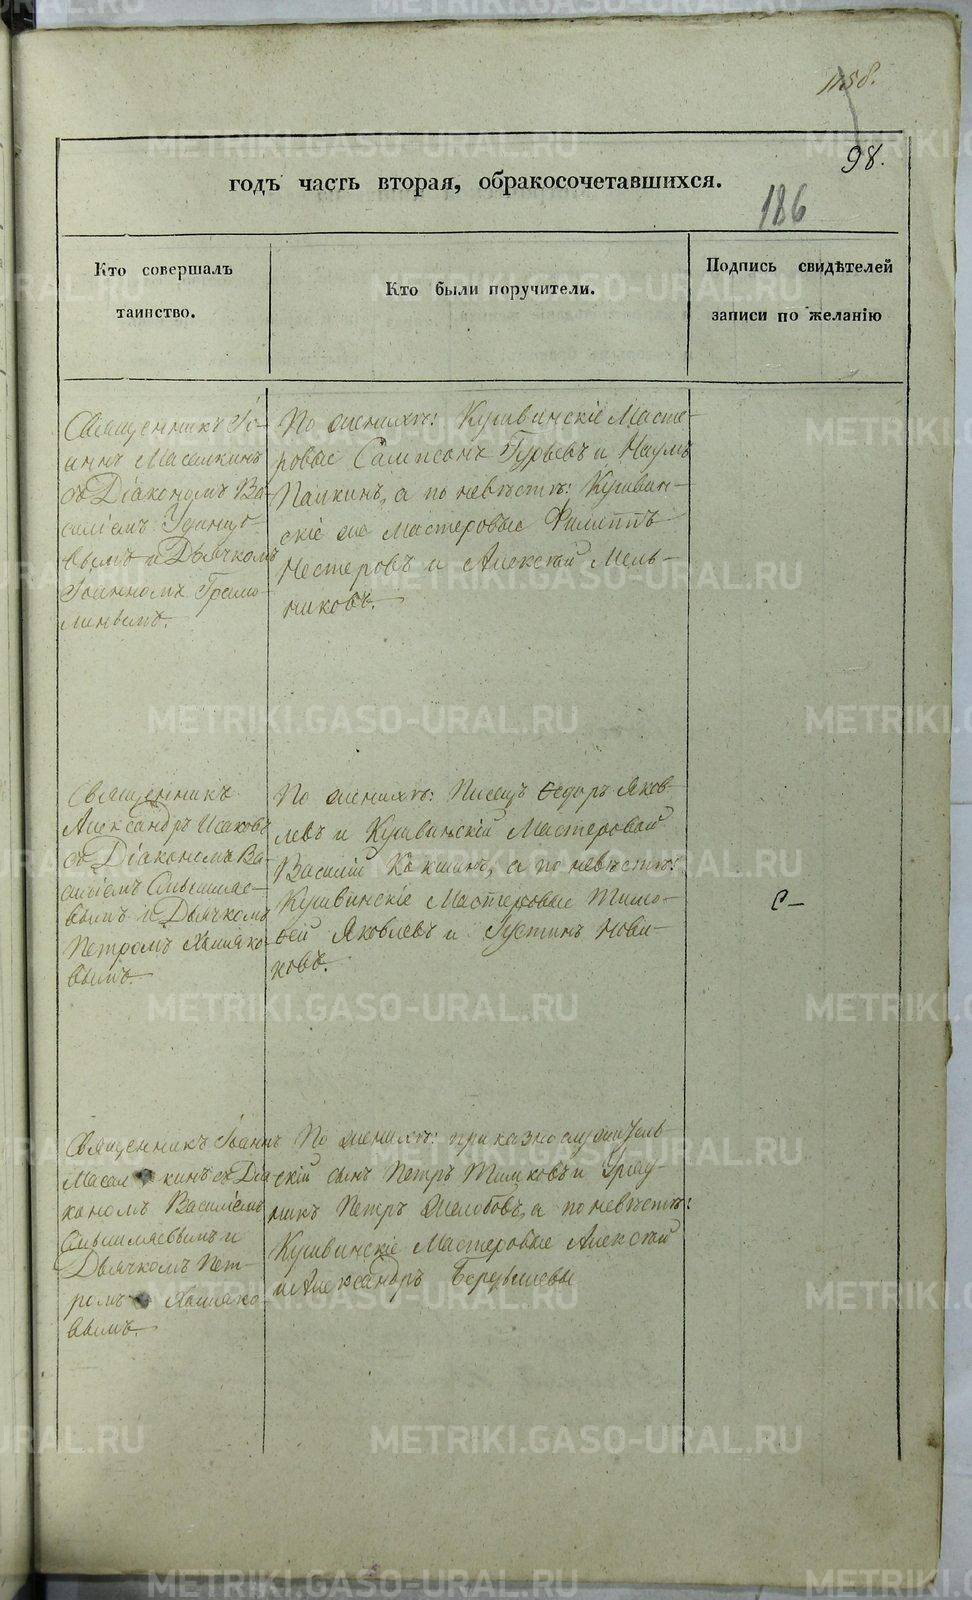 1158.
98.
186
годъ часть вторая, обракосочетавшихся.
Кто совершалъ
таинство.
Кто были поручители.
Подпись свидѣтелей
записи по желанію
Священникъ Іо-
аннъ Масалкинъ
съ Діакономъ Ва-
силіемъ
вымъ и Дьячкомъ
Іоанномъ
По женихѣ: Кушвинскіе Масте-
ровые Сампсонъ Гурьевъ и Наумъ
Палкинъ, а по невѣстѣ: Кушвин-
скіе же мастеровые Филиппъ
Нестеровъ и Алексѣй Мель-
никовъ.
Священникъ
Александръ Исаковъ
съ Діакономъ Ва-
силіемъ
вымъ и Дьячкомъ
Петромъ Хмяко-
вымъ.
По женихѣ: Писецъ Ѳедоръ Яков-
левъ и Кушвинскій Мастеровой
Василій Кокшинъ, а по невѣстѣ:
Кушвинскіе Мастеровые Тимо-
ѳей Яковлевъ и Густинъ Нови-
ковъ.
С-
Священникъ Іоаннъ
Масалкинъ съ Діа-
кономъ Василіемъ
и
Дьячкомъ Пет-
ромъ Хмяко-
вымъ.
По женихѣ: приказнослужитель-
скій сынъ Петръ Тимковъ и Уряд-
никъ Петръ Желобовъ, а по невѣстѣ:
Кушвинскіе Мастеровые Алексѣй
и Александръ
METRIKI.GASO-URAL.RU